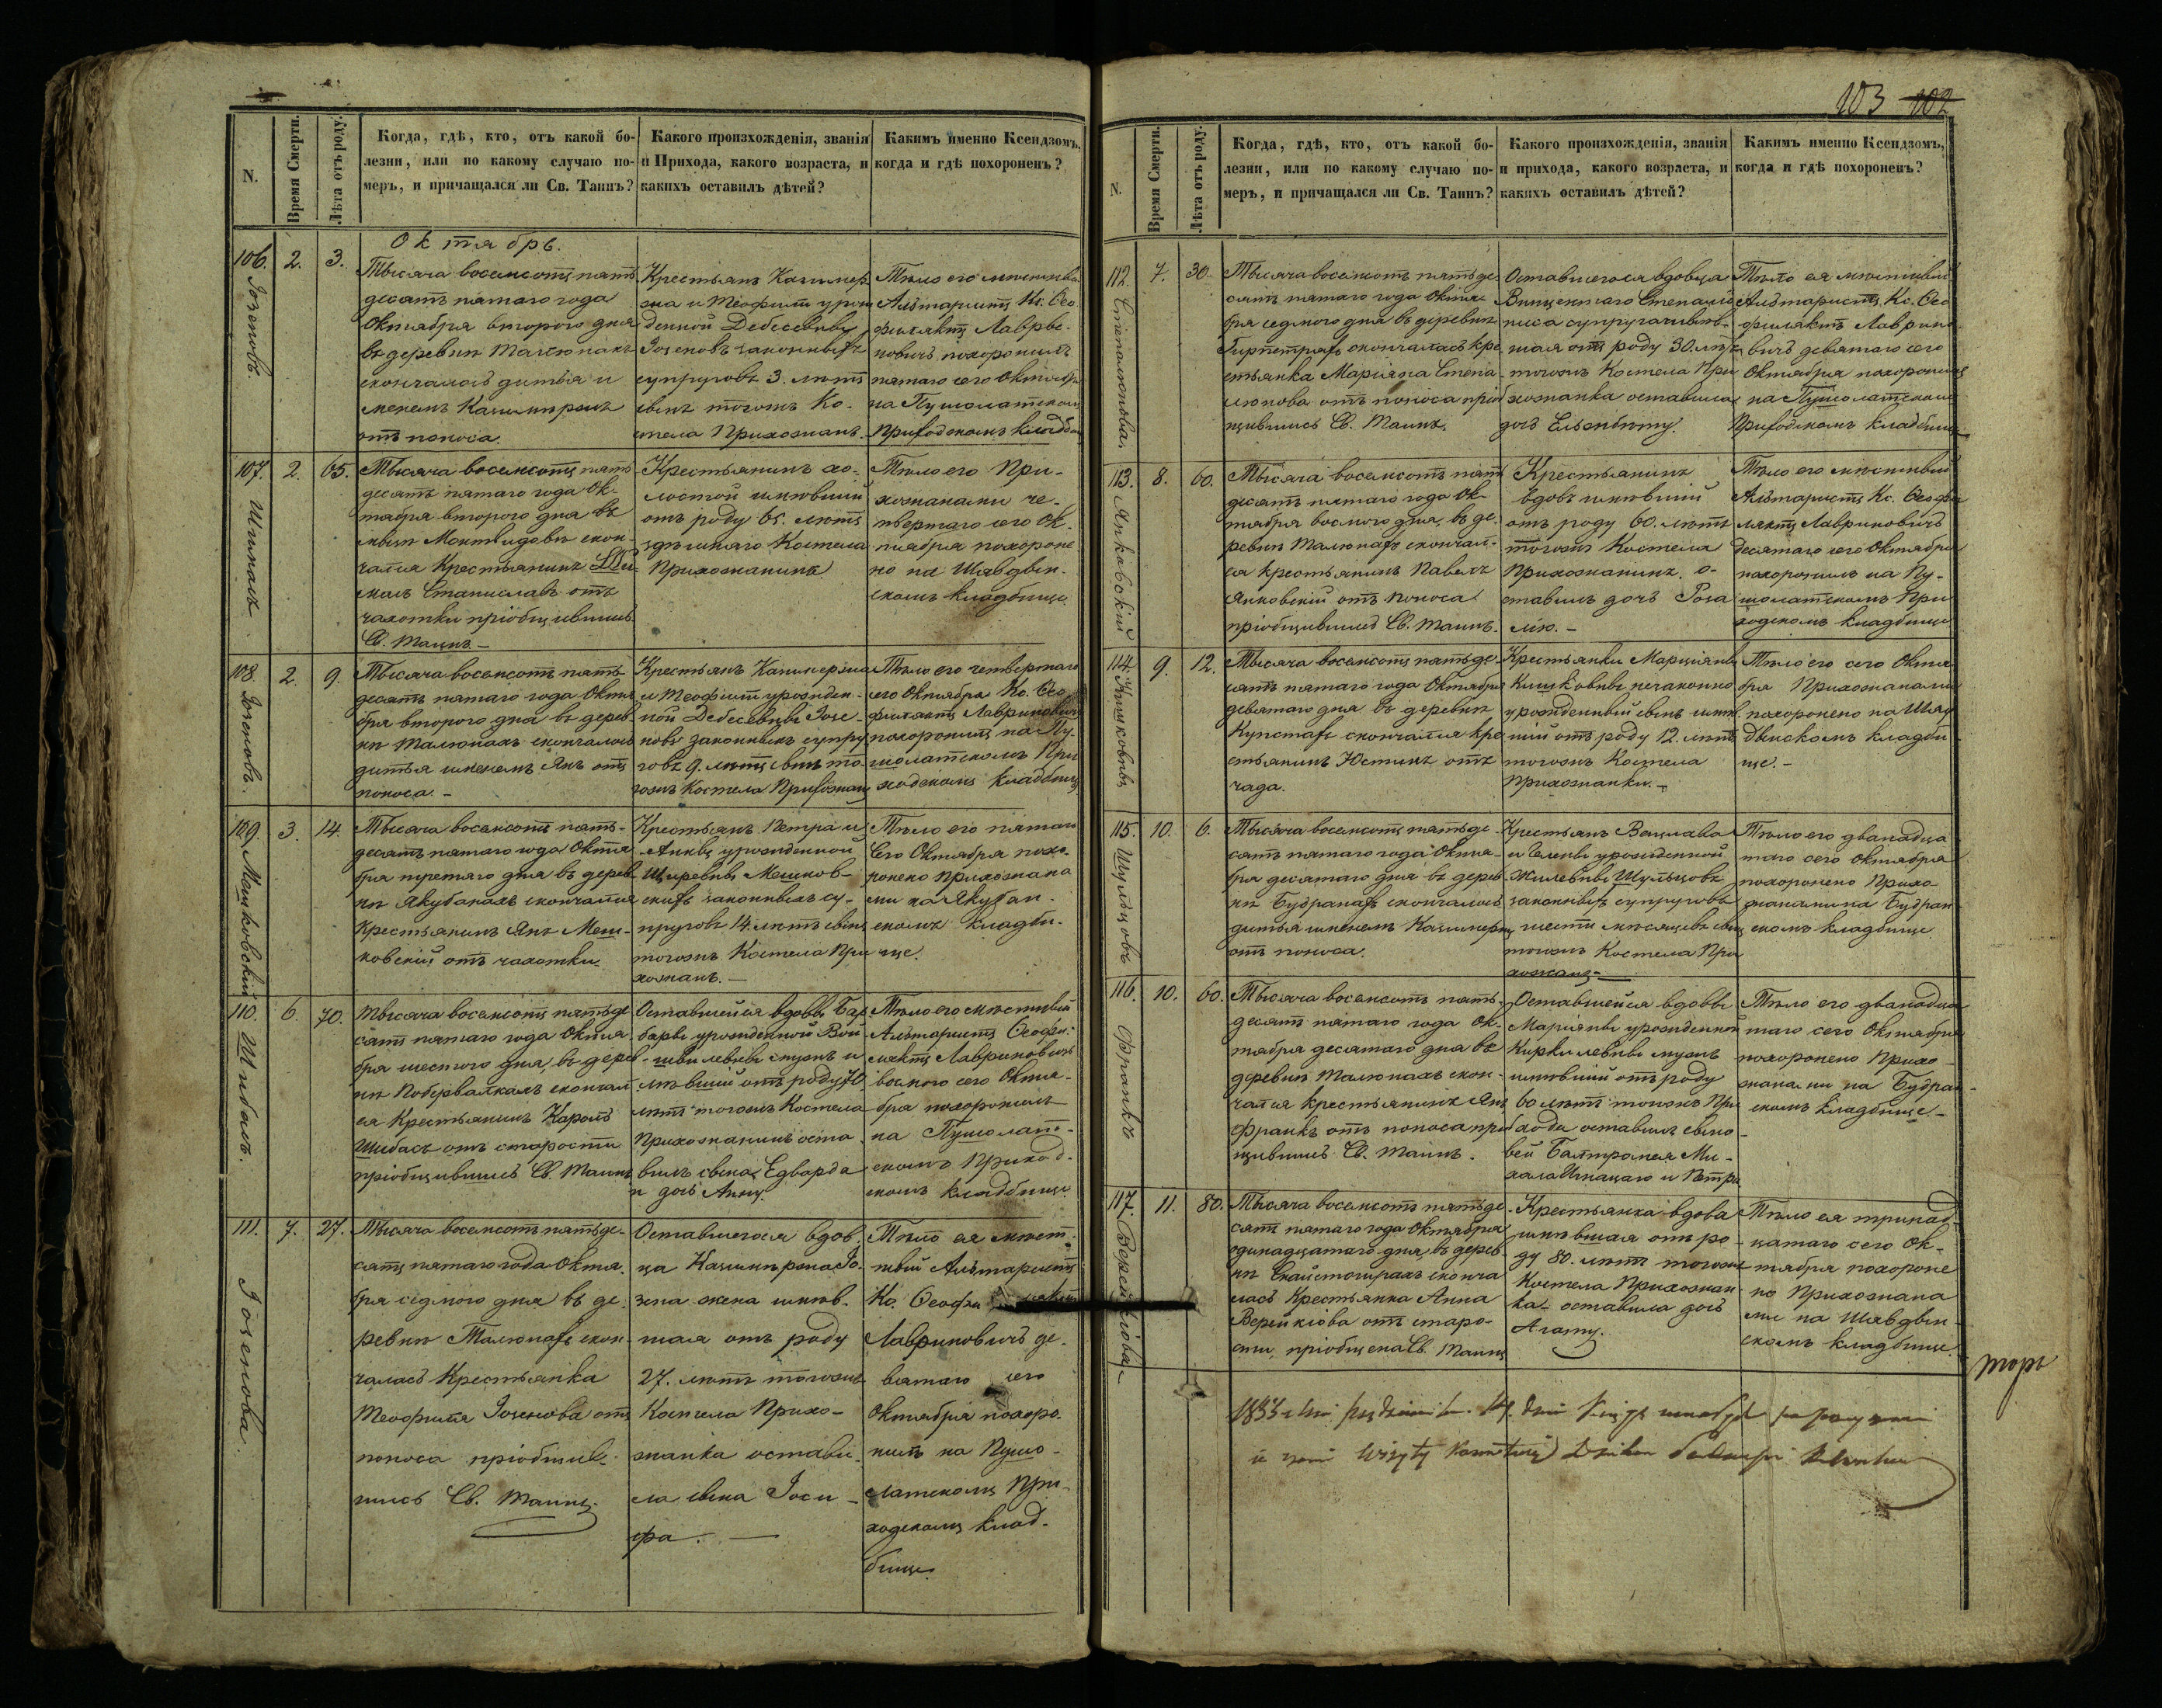 103 102
N.
Время Смерти.
Лѣта отъ роду.
Когда, гдѣ, кто, отъ какой бо-
лезни, или по какому случаю по-
меръ, и причащался ли Св. Таинъ?
Какого произхожденія, званія
и Прихода, какого возраста, и
какихъ оставилъ дѣтей?
Какимъ именно Ксендзомъ,
когда и гдѣ похороненъ?
Октябрь.
106. 2. 3.
Іозеповъ.
Тысяча восемсотъ пять
десятъ пятаго года
Октября втораго дня
въ деревнѣ Талюнахъ
скончалось дитья и
менемъ Казимѣромъ
отъ поноса.
Крестьянъ Казимер
зна и Теофили урож
денной Дебесевны
Іозеповъ законныхъ
супруговъ 3. лѣтъ
сынъ тогожъ Ко-
стела Прихожанъ.
Тѣло его мѣстный
Альтаристъ Кс. Ѳео
филактъ Лаври-
новичъ похоронилъ
пятаго сего Октября
на Пушолатскомъ
Приходскомъ кладби
107. 2. 65.
Шималь
Тысяча восемсотъ пять
десятъ пятаго года Ок-
тября втораго дня въ
мызѣ Монтвидовѣ скон-
чался Крестьянинъ Ши
маль Станиславъ отъ
чахотки пріобщившись
Св. Таинъ –
Крестьянинъ хо-
лостой имѣвшій
отъ роду 65. лѣтъ
здѣшняго Костела
Прихожанинъ
Тѣло его При-
хожанами че-
твертаго сего Ок-
тября похороне
но на Шавдвин-
скомъ кладбище
108 2. 9.
Іозеповъ.
Тысяча восемсотъ пять-
десятъ пятаго года Октя
бря втораго дня въ дерев-
нѣ Талюнахъ скончалось
дитья именемъ Янъ отъ
поноса. –
Крестьянъ Казимерзна
и Теофили урожден-
ной Дебесевны Іозе-
повъ законныхъ супру
говъ 9. лѣтъ сынъ то-
гожъ Костела Прихожанъ
Тѣло его четвертаго
сего Октября Кс. Ѳео
филактъ Лавриновичъ
похоронилъ на Пу-
шолатскомъ При
ходскомъ кладбищѣ
109. 3. 14.
Мешковскій
Тысяча восемсотъ пять-
десятъ пятаго года Октя
бря третьяго дня въ дерев
нѣ Якубанахъ скончался
Крестьянинъ Янъ Меш-
ковскій отъ чахотки.
Крестьянъ Петра и
Анны урожденной
Щиревны Мешков-
скихъ законныхъ су-
пруговъ 14. лѣтъ сынъ
тогожъ Костела При
хожанъ. –
Тѣло его пятаго
Сего Октября похо-
ронено прихожана
ми на Якубан-
скомъ кладби-
ще.
110. 6. 70.
Шибасъ.
Тысяча восемсотъ пятьде
сятъ пятаго года Октя
бря шестого дня, въ дерев
нѣ Побервалкахъ скончал
ся Крестьянинъ Кароль
Шибасъ отъ старости
пріобщившись Св. Таинъ
Оставшейся вдовы Бар
бары урожденной Вой
швилевны мужъ и
мѣвшій отъ роду 70
лѣтъ тогожъ Костела
Прихожанинъ оста
вилъ сына Едварда
и дочь Анну.
Тѣло его мѣстный
Альтаристъ Ѳеофи-
лактъ Лавриновичъ
восмого сего Октя-
бря похоронилъ
на Пушолат-
скомъ Приход-
скомъ кладбище.
111. 7. 27.
Іозепова.
Тысяча восемсотъ пятьде-
сятъ пятаго года Октя-
бря седмого дня въ де-
ревнѣ Талюнахъ скон-
чалась Крестьянка
Теофиля Іозепова отъ
поноса пріобщив-
шись Св. Таинъ.
Оставшегося вдов-
ца Казимѣрзна Іо-
зепа жена имѣв-
шая отъ роду
27. лѣтъ тогожъ
Костела Прихо-
жанка остави-
ла сына Іоси-
фа. –
Тѣло ея мѣст-
ный Альтаристъ
Кс. Ѳеофи лактъ
Лавриновичъ де-
вятаго сего
Октября похоро-
нилъ на Пушо-
латскомъ При-
ходскомъ клад-
бище.
N.
Время Смерти.
Лѣта отъ роду.
Когда, гдѣ, кто, отъ какой бо-
лезни, или по какому случаю по-
меръ, и причащался ли Св. Таинъ?
Какого произхожденія, званія
и прихода, какого возраста, и
какихъ оставилъ дѣтей?
Какимъ именно Ксендзомъ,
когда и гдѣ похороненъ?
112. 7. 30.
Степалюнова.
Тысяча восемсотъ пятьде-
сятъ пятаго года Октя-
бря седмого дня въ деревнѣ
скончалась кре
стьянка Маріяна Степа-
люнова отъ поноса пріоб
щившись Св. Таинъ.
Оставшегося вдовца
супруга имѣв-
шая отъ роду 30. лѣтъ
тогожъ Костела При
хожанка оставила
дочь Ельжбѣту.
Тѣло ея мѣстный
Альтаристъ Кс. Ѳео
филактъ Лаврино-
вичъ девятаго сего
Октября похоронилъ
на Пушолатскомъ
Приходскомъ кладбище
113. 8. 60.
Янковскій
Тысяча восемсотъ пять
десятъ пятаго года Ок-
тября восмого дня, въ де-
ревнѣ Талюнахъ скончал-
ся крестьянинъ Павелъ
Янковскій отъ поноса
пріобщившись Св. Таинъ.
Крестьянинъ
вдовъ имѣвшій
отъ роду 60. лѣтъ
тогожъ Костела
Прихожанинъ, о-
ставилъ дочь Роза
лію. –
Тѣло его мѣстный
Альтаристъ Кс. Ѳеофи
лактъ Лавриновичъ
десятаго сего Октября
похоронилъ на Пу-
шолатскомъ При
ходскомъ кладбище
114. 9. 12.
Тысяча восемсотъ пятьде-
сятъ пятаго года Октября
девятаго дня въ деревнѣ
скончался кре
стьянинъ Юстинъ отъ
чада.
Крестьянки Марціяны
незаконно
урожденный сынъ имѣв
шій отъ роду 12. лѣтъ
тогожъ Костела
Прихожанки. –
Тѣло его сего Октя
бря Прихожанами
похоронено на Шав
двинскомъ кладби
ще. –
115. 10. 6.
Шульцовъ
Тысяча восемсотъ пятьде-
сятъ пятаго года Октя-
бря десятаго дня въ дерев
нѣ Будранахъ скончалось
дитья именемъ Казимеръ
отъ поноса.
Крестьянъ Вацлава
и Елены урожденной
Жилевны Шульцовъ
законныхъ супруговъ
шести мѣсяцевъ сынъ
тогожъ Костела При
хожанъ –
Тѣло его дванадца
таго сего Октября
похоронено Прихо-
жанами на Будран
скомъ кладбище
116. 10. 60.
Франкъ
Тысяча восемсотъ пять-
десятъ пятаго года Ок-
тября десятаго дня въ
деревнѣ Талюнахъ скон-
чался крестьянинъ Янъ
Франкъ отъ поноса пріоб
щившись Св. Таинъ.
Оставшейся вдовы
Маріяны урожденной
Киркилевны мужъ
имѣвшій отъ роду
60 лѣтъ тогожъ При
хода оставилъ сыно-
вей Балтромея Ми-
хала Игнацаго и Петра
Тѣло его дванадца
таго сего Октября
похоронено Прихо-
жанами на Будран-
скомъ кладбище –
117. 11. 80.
Верейкіова
Тысяча восемсотъ пятьде
сятъ пятаго года Октября
одинадцатаго дня, въ дерев-
нѣ Скайстогирахъ сконча
лась Крестьянка Анна
Верейкіова отъ старо-
сти, пріобщена Св. Таинъ
Крестьянка вдова
имѣвшая отъ ро-
ду 80. лѣтъ тогожъ
Костела Прихожан-
ка оставила дочь
Агату.
Тѣло ея тринад-
цатаго сего Ок-
тября похороне
но Прихожана
ми на Шавдвин
скомъ кладбище.